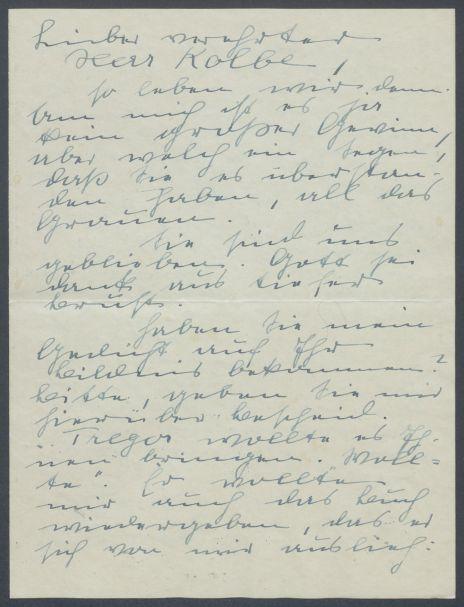 Lieber verehrter
Herr Kolbe,
so leben wir denn.
Um mich ist es ja
kein großer Gewinn,
aber welch ein Segen,
daß Sie es überstan-
den haben, all das
Grauen.
Sie sind uns
geblieben. Gott sei
dank aus tiefer
Brust.
Haben Sie mein
Gedicht auf Ihr
Bildnis bekommen?
Bitte, geben Sie mir
hierüber Bescheid.
"Tregor wollte es Ih-
nen bringen. Woll=
te". Er wollte
mir auch das Buch
wiedergeben, das er
sich von mir auslieh: